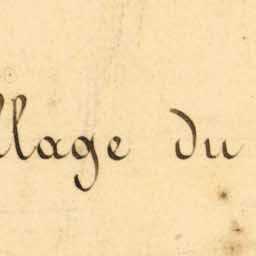 llage du